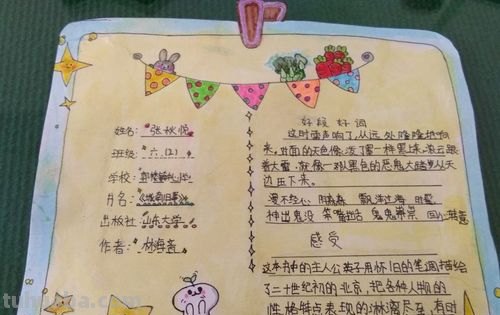 好段 好词
姓名: 张秋悦
这时雷声响了,从远处隆隆地响
班级: 六.(2)
来,对面的天色像泼了墨一样黑,浓云跟
着大雷,就像一队黑色的恶鬼大踏步从天
学校:
边压下来。
书名:《城南旧事》
漫不经心 阴森森 飘洋过海
出版社: 山东大学
神出鬼没 鬼鬼祟祟 回心转意
作者: 林海音
感受
这本书中的主人公英子用怀旧的笔调描绘
了二十世纪初的北京,把各种人物的
性格特点表现的淋漓尽至,有时